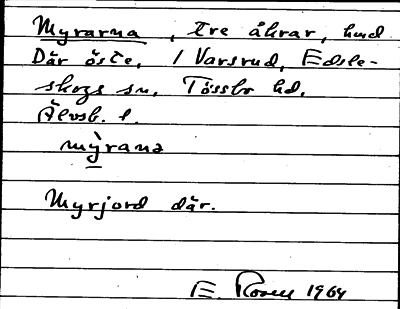 Myrarna, tre åkrar, hmd
Där öste, 1 Varsrud, Edsle-
skogs sn. Tössbo hd.
Älvsb. l.
mỳrana
Myrjord där.
E. Rosell 1964